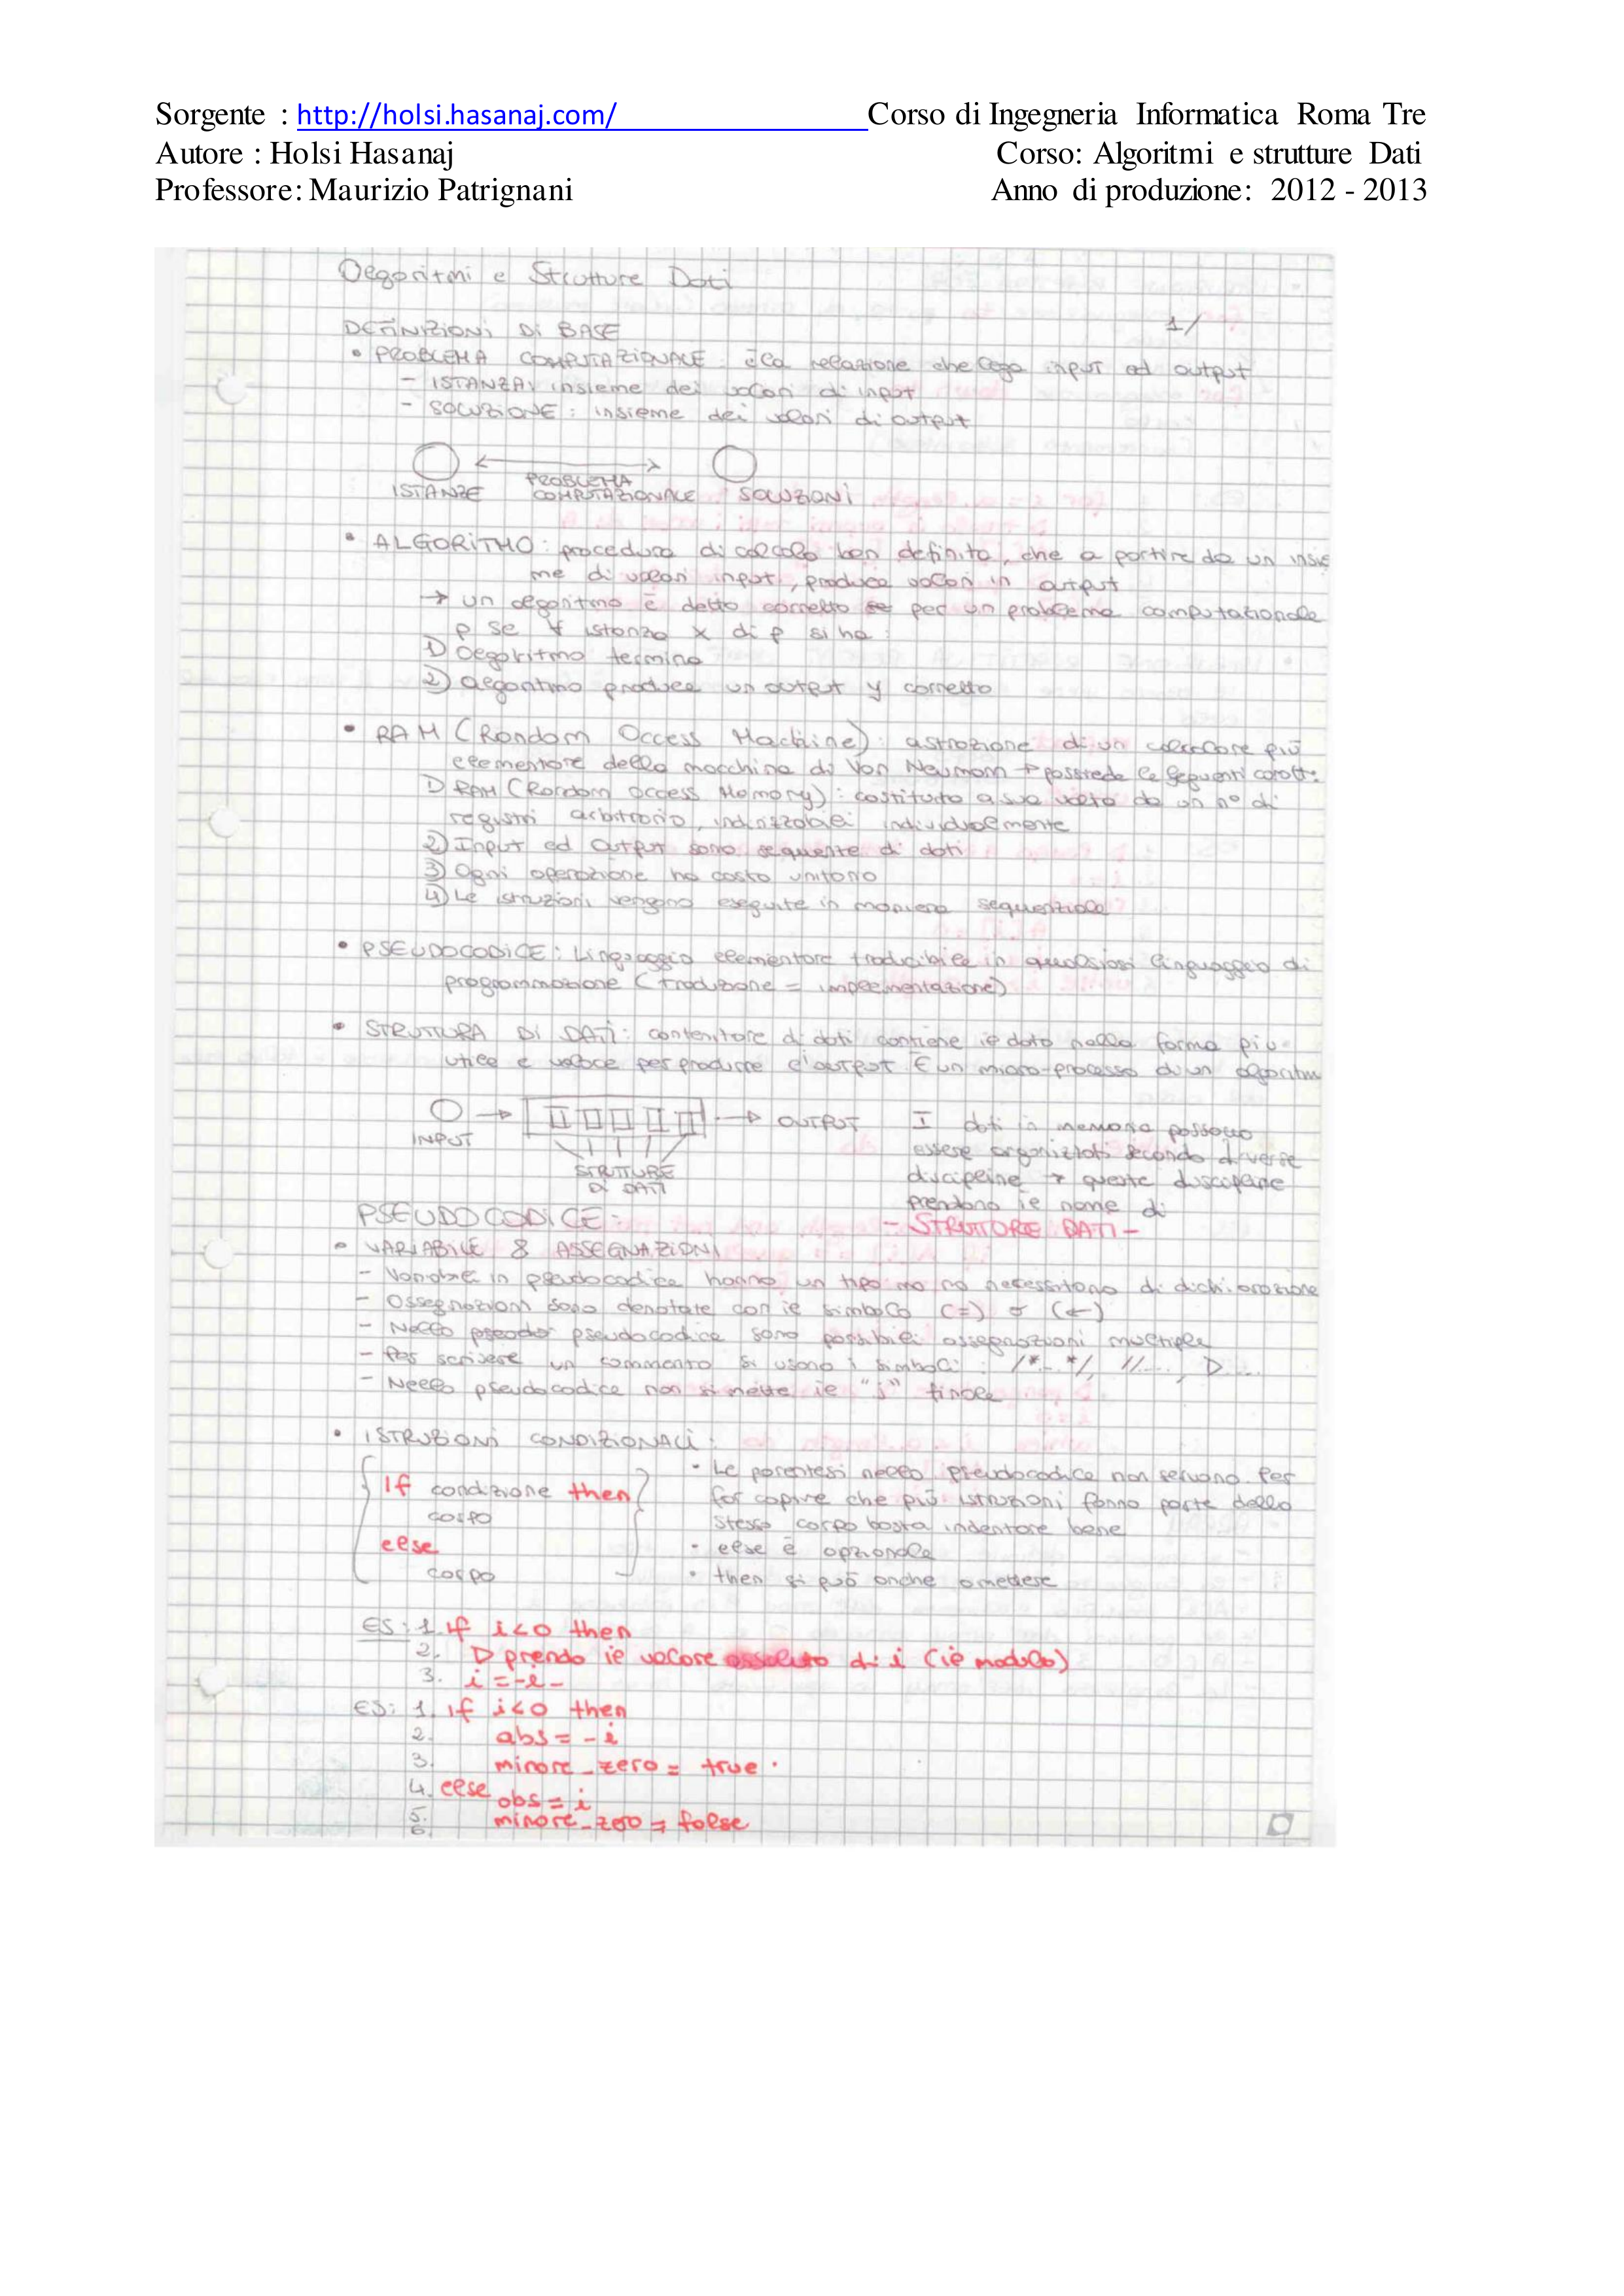 Sorgente : http://holsi.hasanaj.com/ Corso di Ingegneria Informatica Roma Tre
Autore : Holsi Hasanaj Corso: Algoritmi e strutture Dati
Professore: Maurizio Patrignani Anno di produzione: 2012 - 2013
Algoritmi e Strutture Dati
DEFINIZIONI DI BASE 1/
• PROBLEMA COMPUTAZIONALE: è la relazione che lega input ed output
- ISTANZA: insieme dei valori di input
- SOLUZIONE: insieme dei valori di output
ISTANZE PROBLEMA COMPUTAZIONALE SOLUZIONI
• ALGORITMO: procedura di calcolo ben definita, che a partire da un insie
me di valori input, produce valori in output
→ un algoritmo è detto corretto per un problema computazionale
p se ∀ istanza x di p si ha:
1) algoritmo termina
2) algoritmo produce un output y corretto
• RAM (Random Access Machine): astrazione di un calcolatore più
elementare della macchina di Von Neumann → possiede le seguenti caratt:
1) RAM (Random Access Memory): costituita a sua volta da un n° di
registri arbitrario, indirizzabili individualmente
2) Input ed output sono sequenze di dati
3) Ogni operazione ha costo unitario
4) Le istruzioni vengono eseguite in maniera sequenziale
• PSEUDOCODICE: Linguaggio elementare traducibile in qualsiasi linguaggio di
programmazione (traduzione = implementazione)
• STRUTTURA DI DATI: contenitore di dati contiene il dato nella forma più
utile e veloce per produrre l'output. È un micro-processo di un algoritmo
INPUT → → OUTPUT
STRUTTURE
DI DATI
I dati in memoria possono
essere organizzati secondo diverse
discipline → queste discipline
prendono il nome di
- STRUTTURE DATI -
PSEUDOCODICE:
• VARIABILE & ASSEGNAZIONI
- Variabili in pseudocodice hanno un tipo ma no necessitano di dichiarazione
- Assegnazioni sono denotate con il simbolo (=) o (←)
- Nello pseudocodice sono possibili assegnazioni multiple
- Per scrivere un commento si usano i simboli: /*...*/, //...., ▷....
- Nello pseudocodice non si mette il ";" finale
• ISTRUZIONI CONDIZIONALI:
If condizione then
corpo
else
corpo
• Le parentesi nello pseudocodice non servono. Per
far capire che più istruzioni fanno parte dello
stesso corpo basta indentare bene
• else è opzionale
• then si può anche omettere
ES: 1. If i<0 then
2. ▷ prendo il valore assoluto di i (il modulo)
3. i = -i
ES: 1. If i<0 then
2. abs = -i
3. minore_zero = true
4. else
5. abs = i
6. minore_zero = false